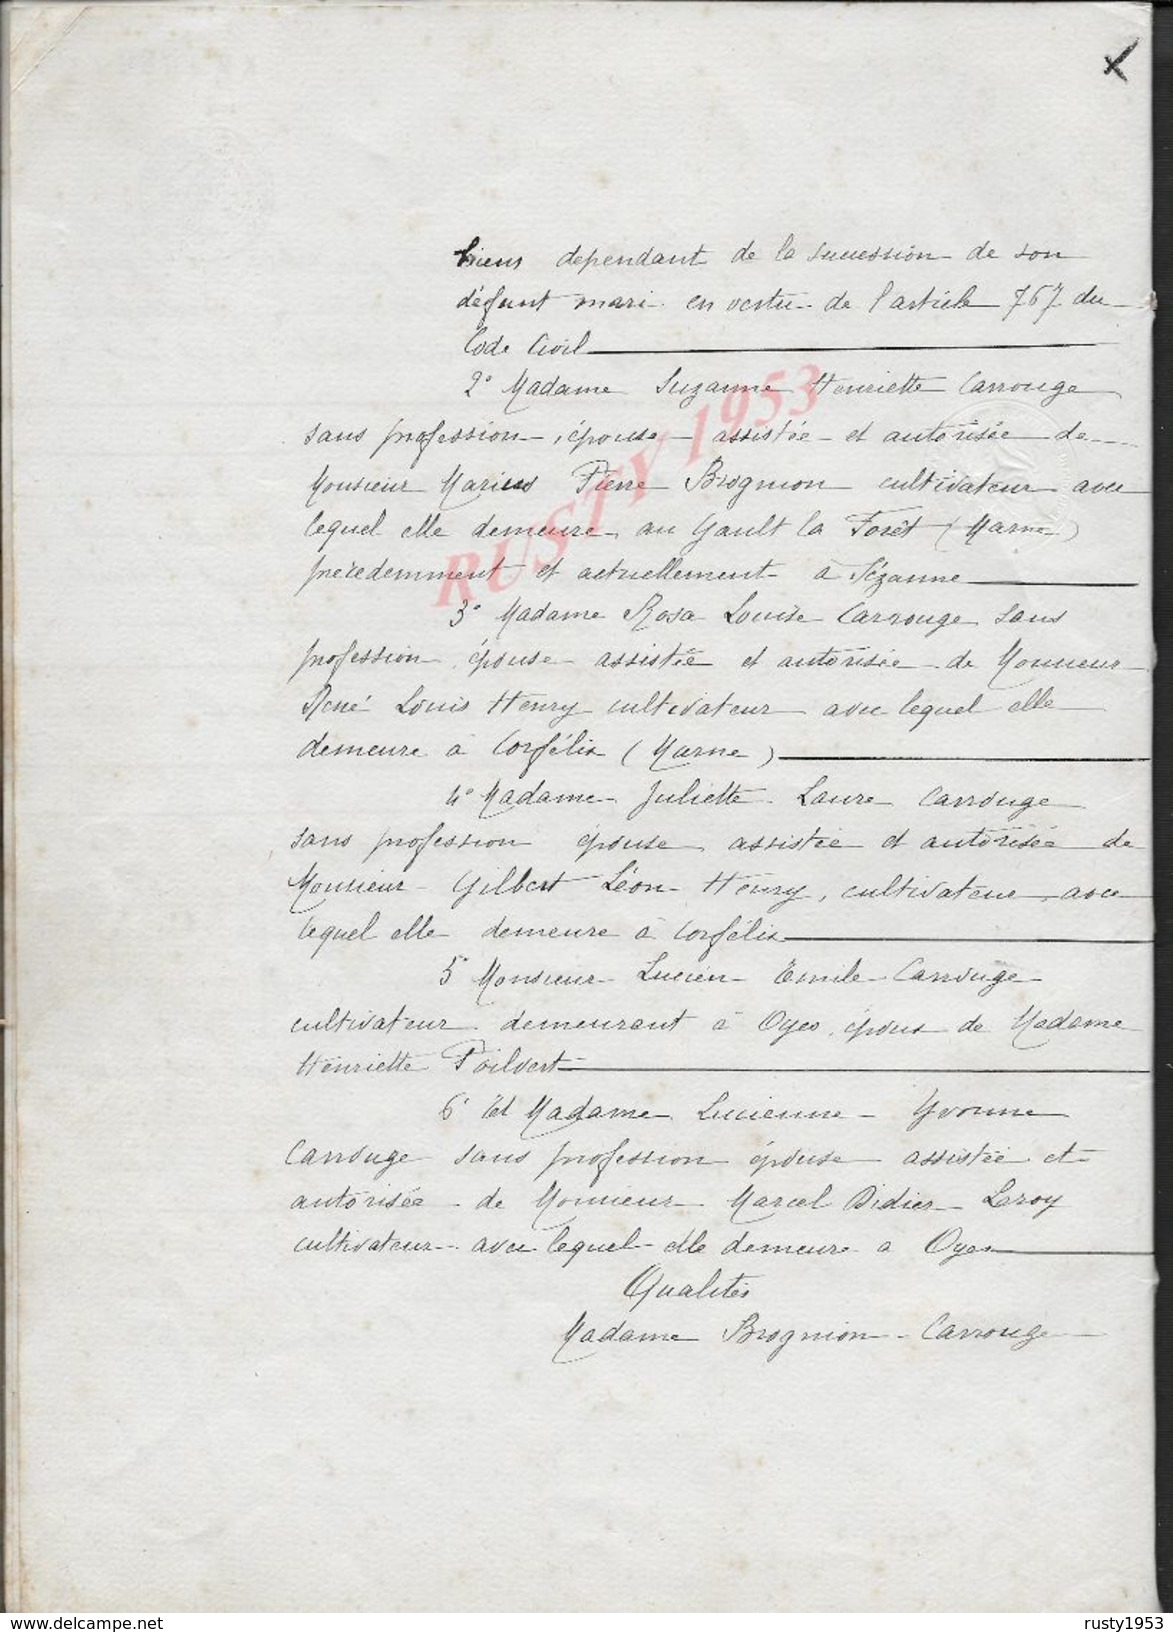 biens dependant de la succession de son
défunt mari en vertu de l'article 767 du
Code Civil
2° Madame Suzanne Henriette Carrouge
sans profession, épouse assistée et autorisée de
Monsieur Marius Pierre Brognion cultivateur avec
lequel elle demeure, au Gault la Forêt (Marne)
precedemment et actuellement à Sézanne
3° Madame Rosa Louise Carrouge sans
profession, épouse assistée et autorisée de Monsieur
René Louis Henry cultivateur avec lequel elle
demeure à Corfélix (Marne)
4° Madame Juliette Laure Carrouge
sans profession épouse assistée et autorisée de
Monsieur Gilbert Léon Henry, cultivateur, avec
lequel elle demeure à Corfélix
5° Monsieur Lucien Emile Carrouge
cultivateur demeurant à Oyes, époux de Madame
Henriette Poilvert
6° Et Madame Lucienne Yvonne
Carrouge sans profession épouse assistée et
autorisée de Monsieur Marcel Didier Leroy
cultivateur avec lequel elle demeure a Oyes
Qualités
Madame Brognion-Carrouge
RUSTY 1953
www.delcampe.net
rusty1953